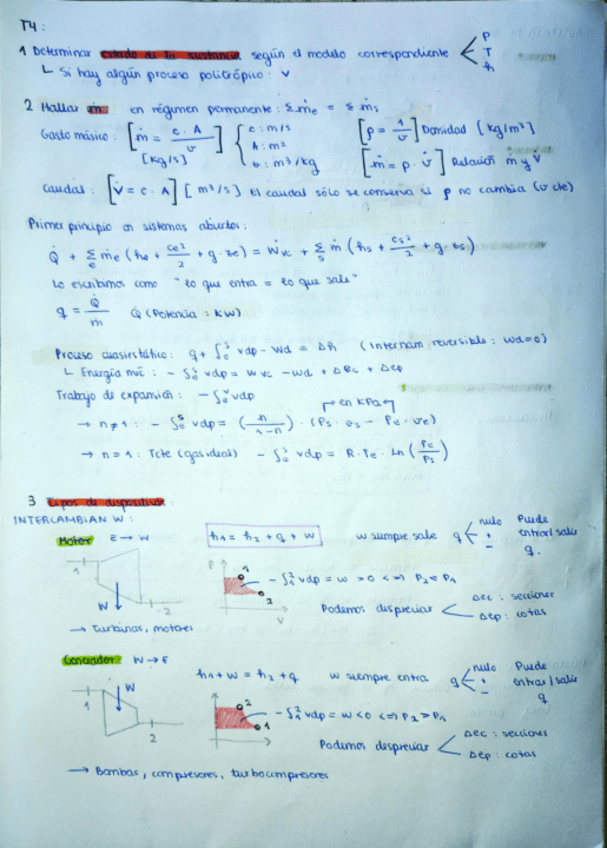 T4:
1 Determinar estado de la sustancia según el modelo correspondiente < P T h
└ Si hay algún proceso politrópico: v
2 Hallar ṁ en régimen permanente: Σṁe = Σṁs
Gasto másico: [ṁ = c·A / v] [kg/s] { c: m/s A: m² v: m³/kg [ρ = 1/v] Densidad [kg/m³]
[ṁ = ρ · V̇] Relación ṁ y V̇
Caudal: [V̇ = c · A] [m³/s] El caudal sólo se conserva si ρ no cambia (v cte)
Primer principio en sistemas abiertos:
Q̇ + Σe ṁe (he + ce²/2 + g·ze) = Ẇvc + Σs ṁ (hs + cs²/2 + g·zs)
Lo escribimos como "lo que entra = lo que sale"
q = Q̇/ṁ Q̇ (Potencia: kW)
Proceso cuasiestático: q + ∫vdp - wd = Δh (Internam. reversible: wd=0)
└ Energía mec: - ∫vdp = wvc - wd + Δec + Δep
Trabajo de expansión: - ∫vdp
en kPa
→ n≠1: - ∫vdp = (n/1-n) · (Ps · vs - Pe · ve)
→ n=1: Tcte (gas ideal) - ∫vdp = R·Te·Ln(Pe/Ps)
3 Tipos de dispositivos:
INTERCAMBIAN W:
Motor E → W h1 = h2 + q + w w siempre sale q < nulo + - Puede entrar/salir q.
1 W 2
P 1 2 V - ∫₁²vdp = w > 0 <=> P2 < P1
Podemos despreciar < Δec: secciones Δep: cotas
→ Turbinas, motores
Generador: W → E h1 + w = h2 + q w siempre entra q < nulo + - Puede entrar/salir q
1 W 2
2 1 - ∫₁²vdp = w < 0 <=> P2 > P1
Podemos despreciar < Δec: secciones Δep: cotas
→ Bombas, compresores, turbocompresores